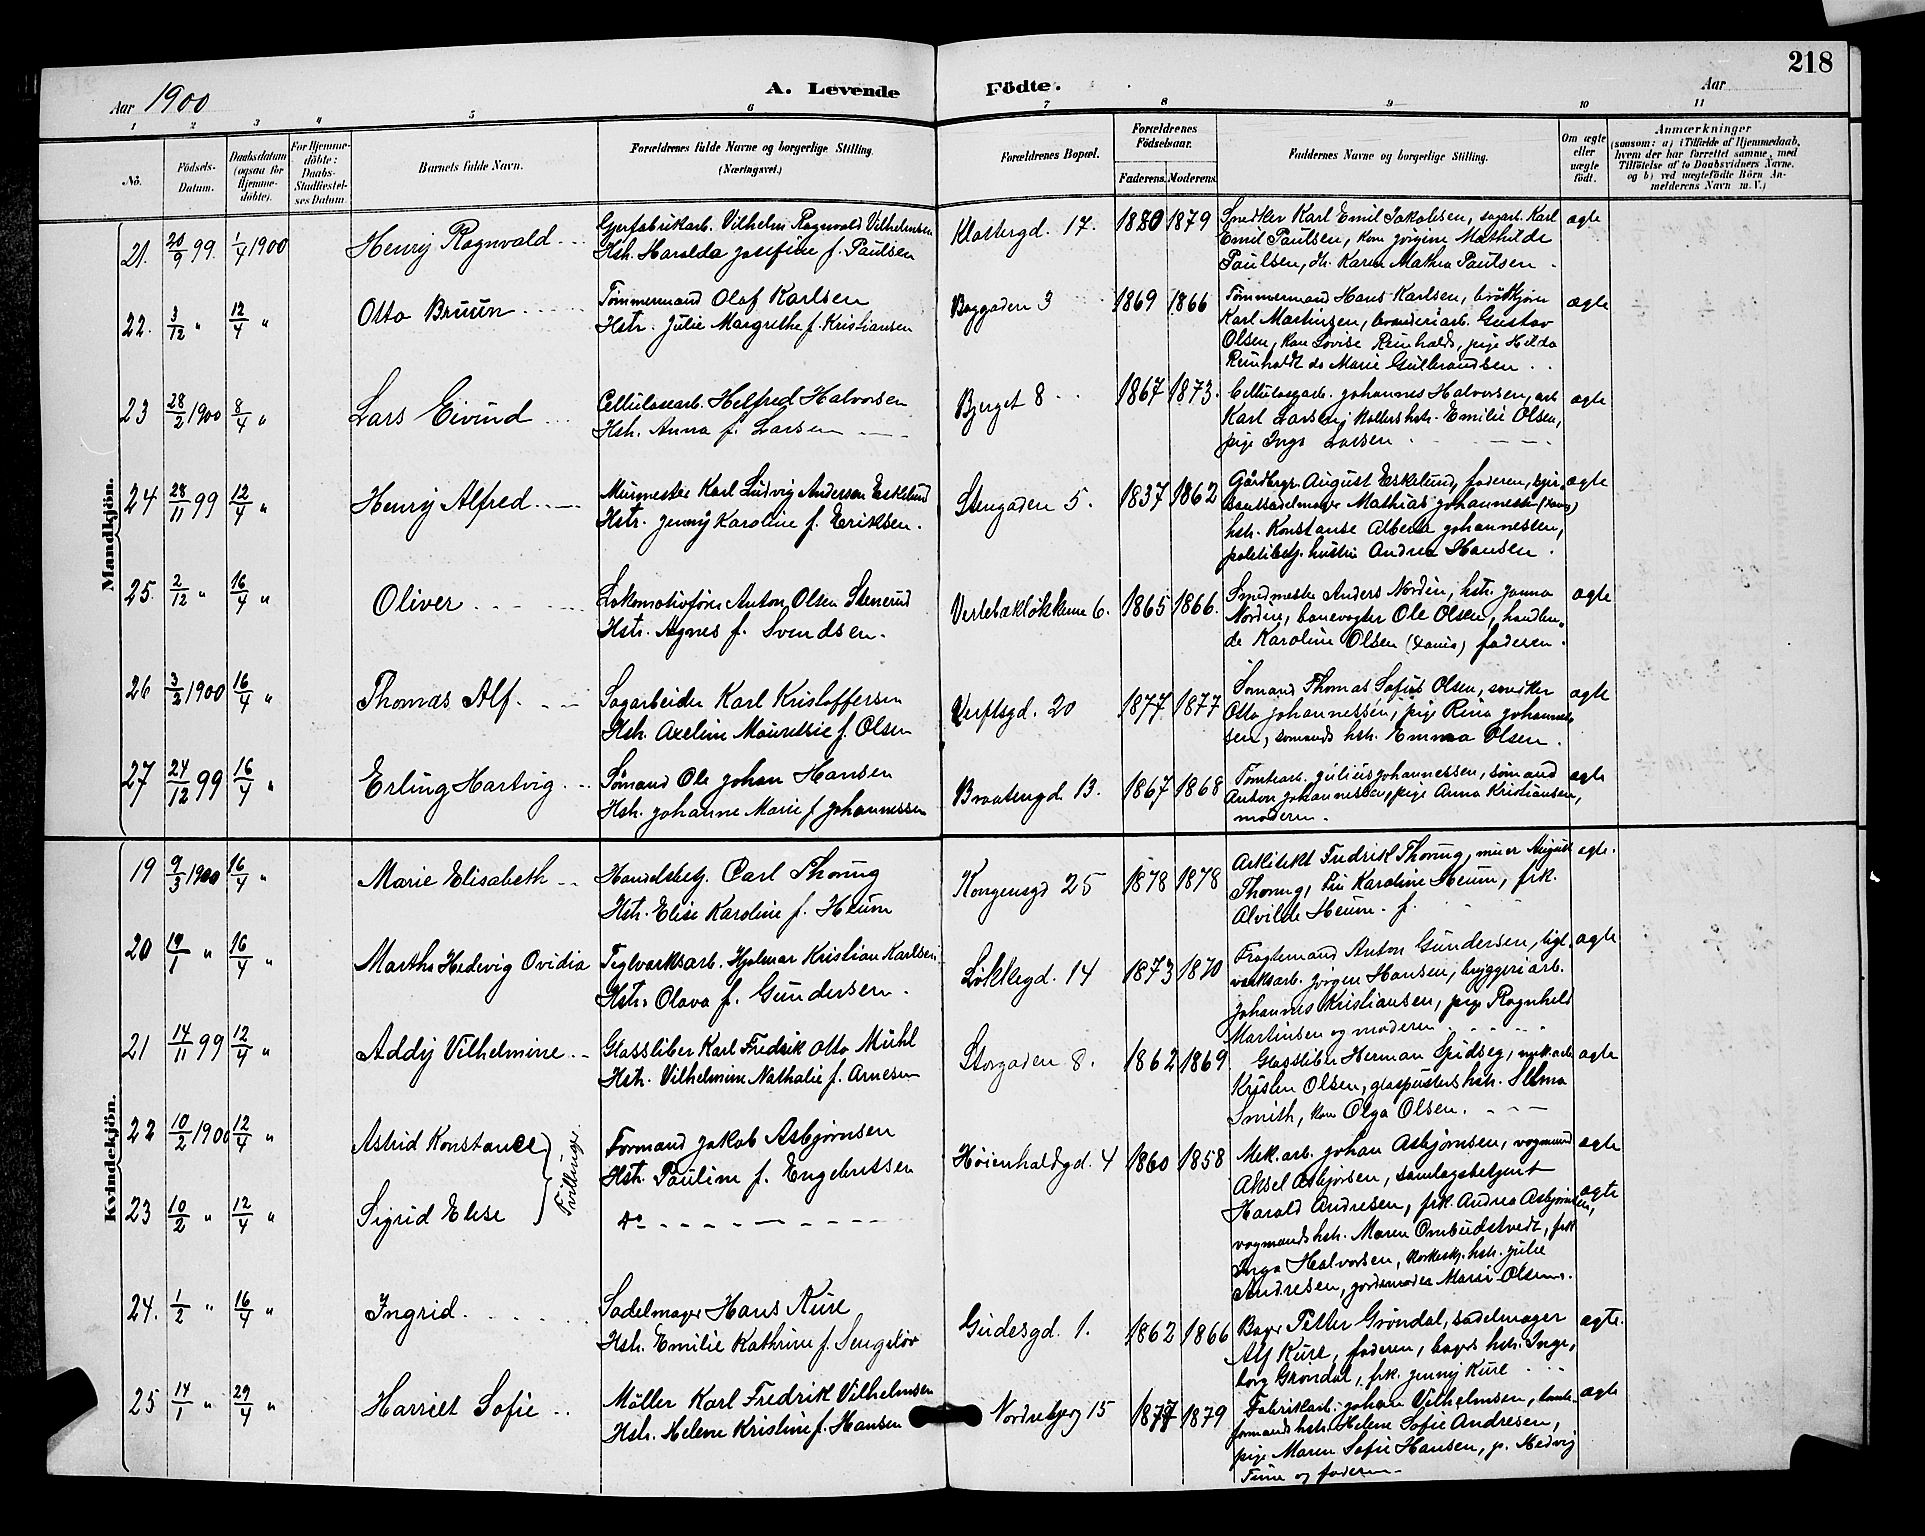 218
Aar 1900 A. Levende Födte. Aar
1 2 3 4 5 6 7 8 9 10 11
No. Födsels-Datum. Daabsdatum (ogsaa for Hjemmedöbte). For Hjemmedöbte: Daabs-Stadfæstelses Datum. Barnets fulde Navn. Forældrenes fulde Navne og borgerlige Stilling. (Næringsvei.) Forældrenes Bopæl. Forældrenes Födselsaar. Faderens. Moderens. Faddernes Navne og borgerlige Stilling. Om ægte eller uægte födt. Anmærkninger (saasom: a) i Tilfælde af Hjemmedaab, hvem der har forrettet samme, med Tilföielse af to Daabsvidners Navne, og b) ved uægtefödte Börn Anmelderens Navn m. V.)
Mandkjön.
21. 20/9 99. 1/4 1900 Henry Ragnvald Vilhelm Ragnvald Vilhelmsen Klostergd. 17. 1880 1879 Snedker Karl Emil Jakobsen, sagarb. Karl ægte
Hstr. Haralda Josefine f. Paulsen Emil Paulsen, kone Jørgine Mathilde
Paulsen, Karen Mathea Paulsen
22. 3/12 " 12/4 " Otto Bruun Tømmermand Olaf Karlsen Baggaden 3 1869 1866 Tømmermand Hans Karlsen, ægte
Hstr. Julie Margrethe f. Kristiansen Karl Martinsen, Gustav
Olsen, kone Lovise Reinholdt, pige Hilda
Reinholdt do Marie Gulbrandsen
23 28/2 1900 8/4 " Lars Eivind Cellulosearb. Helfred Halvorsen Bjerget 8 1867 1873. Cellulosearb. Johannes Halvorsen, arb. ægte
Hstr. Anna f. Larsen Karl Larsen, hstr. Emilie Olsen,
pige Inga Larsen
24 28/11 99 12/4 " Henry Alfred Murmester Karl Ludvig Andersen Eskelund Stengaden 5. 1837 1862 Gårdbrgr. August Eskelund, faderen, ægte
Hstr. Jenny Karoline f. Eriksen. Mathias Johannessen
hstr. Konstanse Alberta Johannessen,
politibetj. hustru Andrea Hansen.
25. 2/12 " 16/4 " Oliver Lokomotivfører Anton Olsen Stenerud 6. 1865 1866. Smedmester Anders Nordin, hstr. Janna ægte
Hstr. Agnes f. Svendsen. Nordin, banevogter Ole Olsen, handlen-
de Karoline Olsen faderen.
26 3/2 1900 16/4 " Thomas Alf. Sagarbeider Karl Kristoffersen Verftsgd. 20 1877 1877 Sømand Thomas Sofus Olsen, snedker ægte
Hstr. Axeline Mauretsie f. Olsen Otto Johannessen, pige Rina Johannes-
sen, sømands hstr. Emma Olsen.
27 24/12 99 16/4 " Erling Hartvig Sømand Ole Johan Hansen Braatengd. 13. 1867 1868 Tomtearb. Julius Johannessen, sømand ægte
Hstr. Johanne Marie f Johannessen Anton Johannessen, pige Anna Kristiansen,
moderen.
Kvindekjön.
19 9/3 1900 16/4 " Marie Elisabeth Handelsbetj. Carl Thoring Kongensgd 25 1878 1878 Arkitekt Fredrik Thoring, murer August ægte.
Hstr. Elise Karoline f. Heum Thoring, Karoline Heum, frk.
Alvilde Heum.
20 19/1 " 16/4 " Martha Hedevig Ovidia Teglverksarb. Hjalmar Kristian Karlsen Løkkegd. 14 1873 1870 Fragtemand Anton Gundersen, tegl- ægte
Hstr. Olava f. Gundersen. verksarb. Jørgen Hansen, bryggeriarb.
Johannes Kristiansen, pige Ragnhild
Martinsen og moderen
21 14/11 99 12/4 " Addy Vilhelmine Glassliber Karl Fredrik Otto Mühl Storgaden 8. 1862 1869 Glassliber Herman Spidseg, mek.arb. ægte
Hstr. Vilhelmine Nathalie f. Arnesen Kristen Olsen, glaspusters hstr. Selma
Smith, kone Olga Olsen.
22 10/2 1900 12/4 " Astrid Konstance Tvillinger. Formand Jakob Asbjørnsen Høienhaldgd. 4 1860 1858 Mek. arb. Johan Asbjørnsen, vognmand ægte
Hstr. Pauline f. Engebretsen Aksel Asbjørnsen, samlagsbetjent
23 10/2 " 12/4 " Sigrid Elise do Harald Andresen, frk. Andrea Asbjørnsen, ægte
vognmands hstr. Maren Ombudstvedt, frk.
Inga Halvorsen, hstr. Julie
Andresen, jordemoder Marie Olsen.
24. 1/2 " 16/4 " Ingrid Sadelmager Hans Kure Gudesgd. 1. 1862 1866 Bager Petter Grøndal, sadelmager ægte.
Hstr. Emilie Kathrine f. Sengeløv Alf Kure, faderen, bagers hstr. Inge-
borg Grøndal, frk. Jenny Kure
25 14/1 " 29/4 " Harriet Sofie Møller Karl Fredrik Vilhelmsen Nordrebjerg 15 1877 1879 Fabrikarb. Johan Vilhelmsen, tomte- ægte
Hstr. Helene Kristine f. Hansen formands hstr. Helene Sofie Andresen,
pige Maren Sofie Hansen, p. Hedvig
og faderen